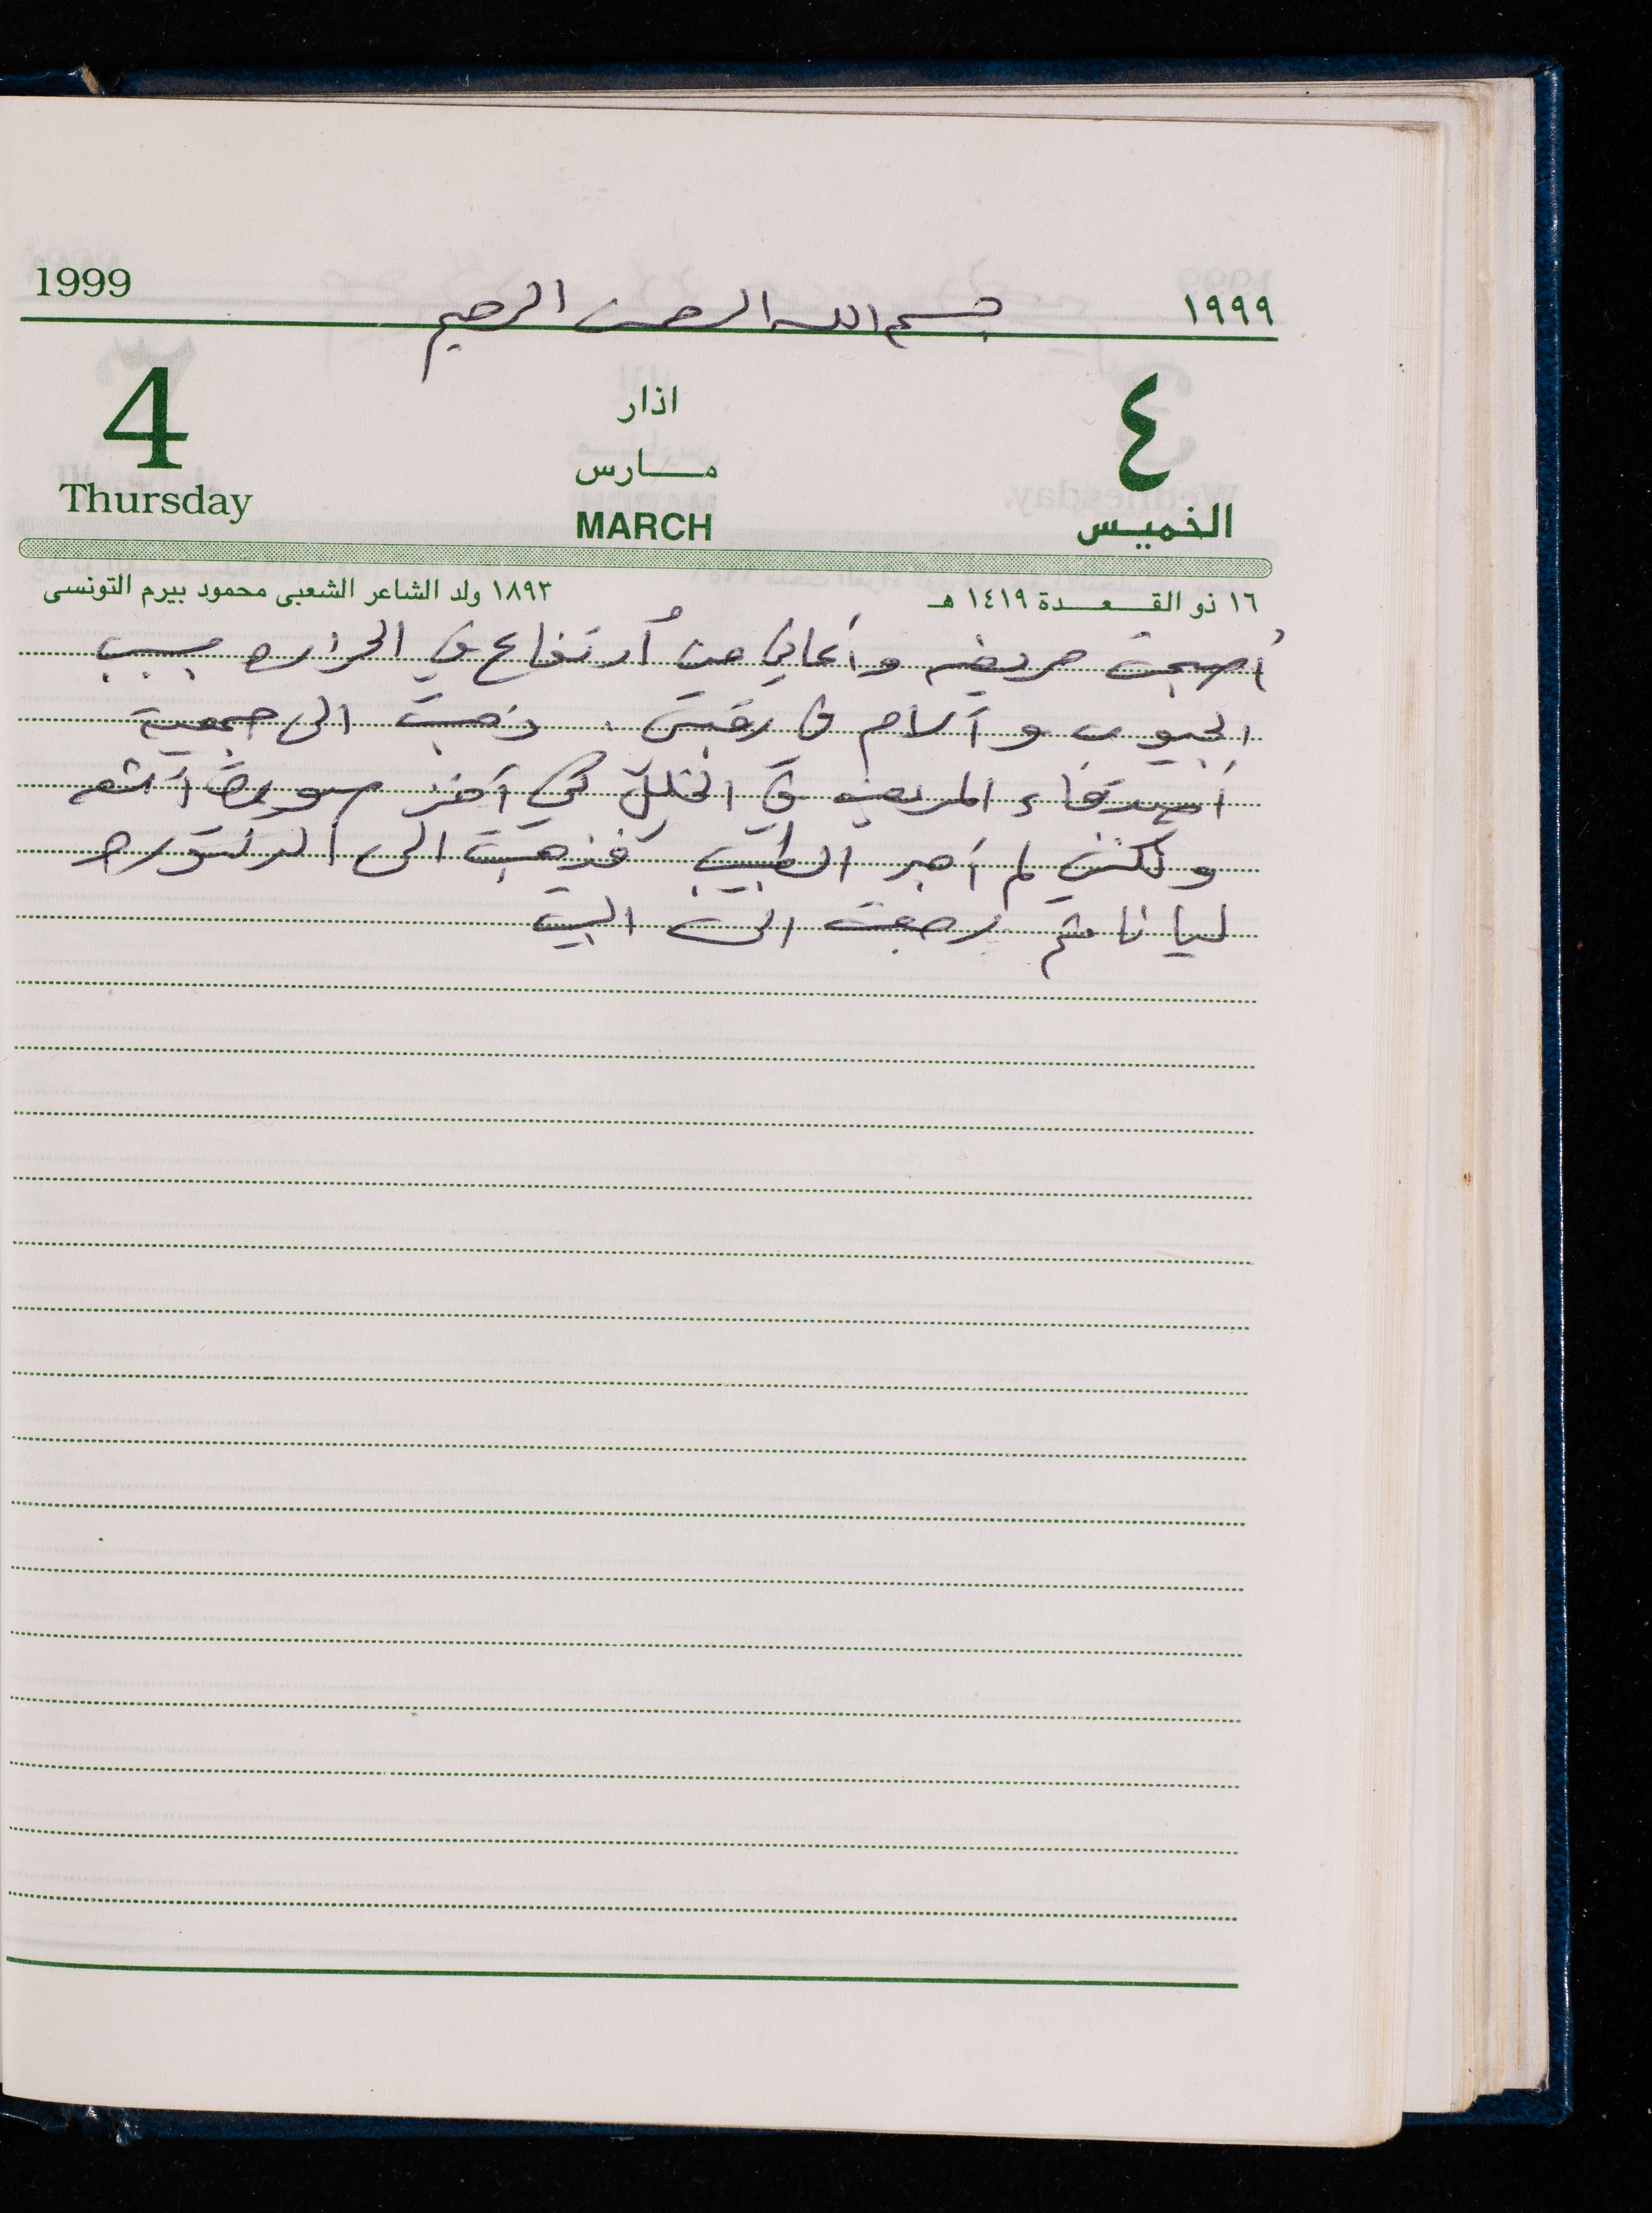 1999 ١٩٩٩
بسم الله الرحمن الرحيم
4 ٤
اذار
مارس
Thursday MARCH الخميس
١٦ ذو القعدة ١٤١٩ هـ ١٨٩٣ ولد الشاعر الشعبى محمود بيرم التونسى
أصبحت مريضه وأعاني من أرتفاع في الحراره بسبب
الجيوب و آلام في رقبتي . ذهبت الى جمعية
أصدقاء المريض في الخليل لكي آخذ صورة أشعه
ولكنني لم أجد الطبيب فذهبت الى الدكتوره
ليانا ثم رجعت الى البيت